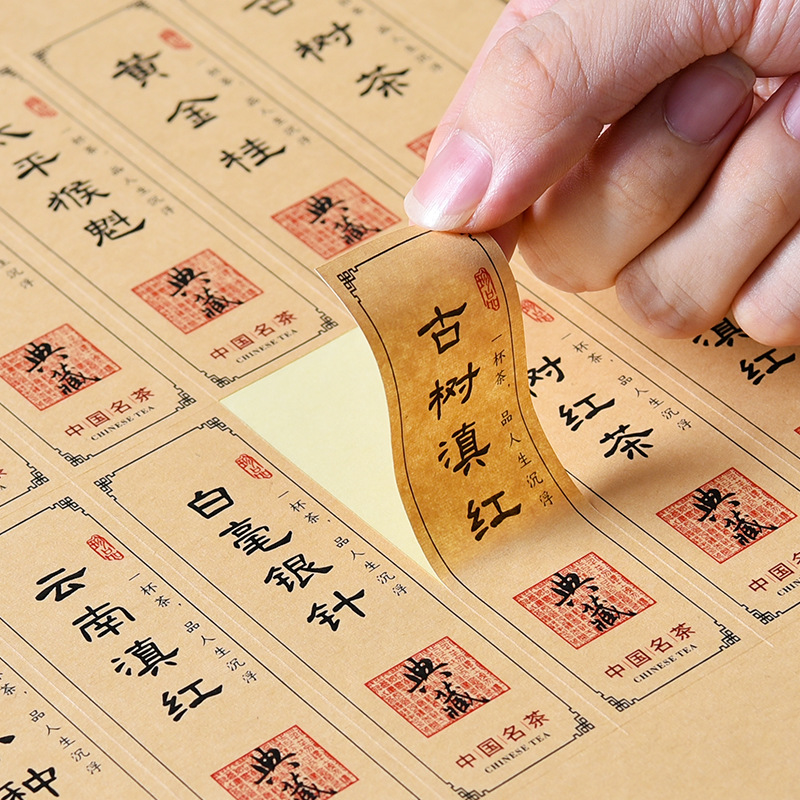 沉浮
典藏
中国名茶
CHINESE TEA
太平猴魁
一杯茶，品人生沉浮
典藏
中国名茶
CHINESE TEA
珍品
黄金桂
一杯茶，品人生沉浮
典藏
树茶
种
品人生沉浮
珍品
云南滇红
一杯茶，品人生沉浮
典藏
珍品
白毫银针
一杯茶，品人生沉浮
典藏
中国名茶
CHINESE TEA
珍品
古树滇红
一杯茶，品人生沉浮
典藏
中国名茶
CHINESE TEA
树红茶
一杯茶，品人生沉浮
典藏
中国名
CHINESE
红